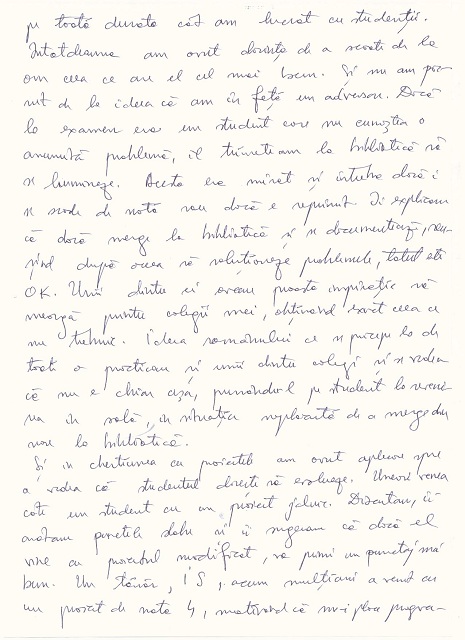 pe toată durata cât am lucrat cu studenții.
Întotdeauna am avut dorința de a scoate de la
om ceea ce are el cel mai bun. Și nu am por-
nit de la ideea că am în față un adversar. Dacă
la examen era un student care nu cunoștea o
anumită problemă, îl trimiteam la bibliotecă să
se lumineze. Acesta era mirat și întreba dacă i
se scade din notă sau dacă e repicat. Îi explicam
că dacă merge la bibliotecă și se documentează, reu-
șind după aceea să soluționeze problemele, totul este
OK. Unii dintre ei aveau proasta inspirație să
meargă printre colegii mei, obținând exact ceea ce
nu trebuie. Ideea românului ce se pricepe la de
toate o practicau și unii dintre colegi și se vedea
că nu e chiar așa, punându-l pe student la reveni-
rea în sală, în situația neplăcută de a merge din
nou la bibliotecă.
Și în chestiunea cu proiectele am avut aplecare spre
a vedea că studentul dorește să evolueze. Uneori venea
câte un student cu un proiect jalnic. Discutam, îi
arătam punctele slabe și îi sugeram că dacă el
vine cu proiectul modificat, va primi un punctaj mai
bun. Un tânăr, I S, acum mulți ani a venit cu
un proiect de nota 4, motivând că nu-i place progra-